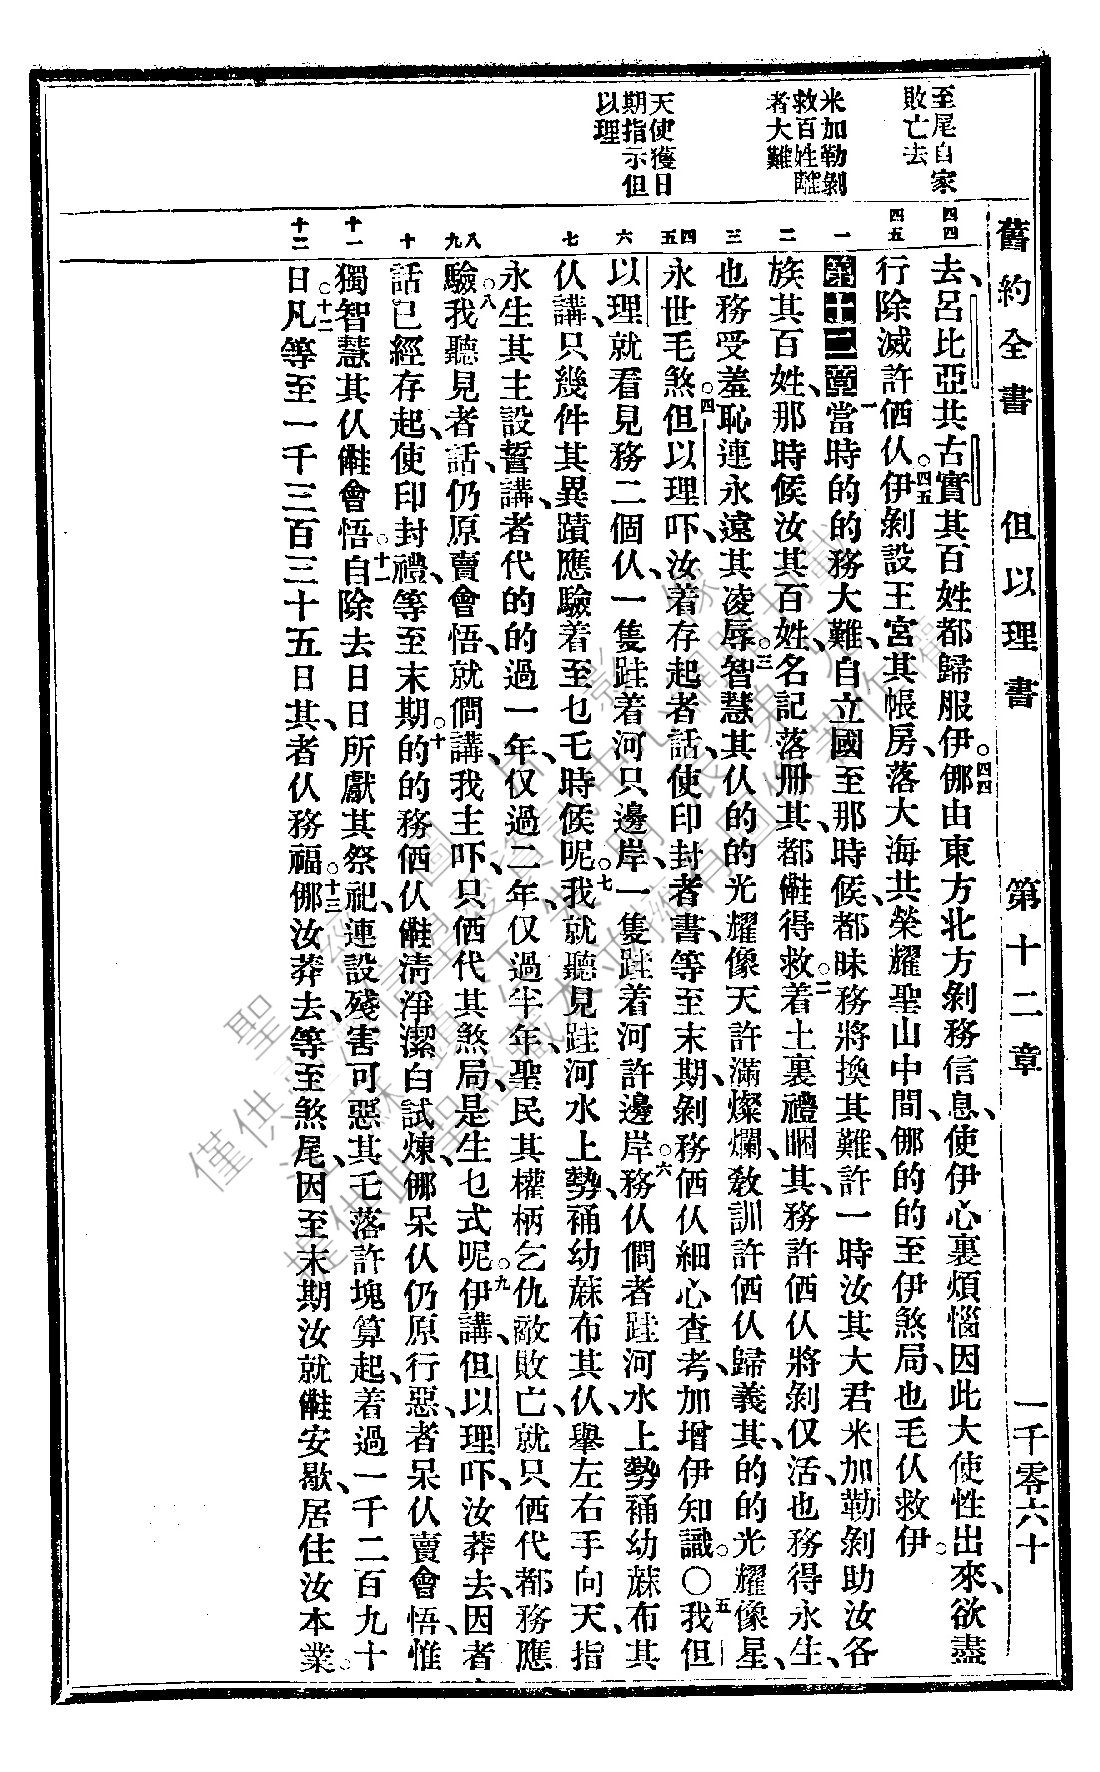 舊約全書　但以理書　第十二章　一千零六十
至尾自家
敗亡去
米加勒剝
救百姓離
者大難
天使獲日
期指示但
以理
四四
四五
一
二
三
四
五
六
七
八
九
十
十一
十二
去、呂比亞共古實其百姓都歸服伊。四四㑚由東方北方剝務信息、使伊心裏煩惱因此大使性出來、欲盡
行除滅許価仈。四五伊剝設王宮其帳房、落大海共榮耀聖山中間、㑚的的至伊煞局、也毛仈救伊。
第十二章一當時的的務大難、自立國至那時候、都昧務將換其難、許一時汝其大君米加勒剝助汝各
族其百姓、那時候汝其百姓、名記落冊其、都𠆧得救。二着土裏禮睏其、務許価仈將剝仅活也務得永生、
也務受羞恥連永遠其凌辱。三智慧其仈的的光耀像天許滿燦爛、敎訓許価仈歸義其、的的光耀像星、
永世毛煞。四但以理吓、汝着存起者話、使印封者書、等至末期、剝務価仈細心查考加增伊知識。〇五我但
以理就看見務二個仈、一隻跬着河只邊岸、一隻跬着河許邊岸。六務仈僩者跬河水上勢䘄幼蔴布其
仈講、只幾件其異蹟應驗着至乜乇時候呢。七我就聽見跬河水上勢、䘄幼蔴布其仈、舉左右手向天、指
永生其主設誓講、者代的的過一年、仅過二年、仅過半年、聖民其權柄乞仇敵敗亡、就只価代都務應
驗。八我聽見者話、仍原賣會悟、就僩講、我主吓、只価代其煞局、是生乜式呢。九伊講、但以理吓、汝莽去、因者
話已經存起、使印封禮、等至末期。十的的務価仈𠆧淸淨潔白試煉、㑚呆仈仍原行惡、者呆仈賣會悟、惟
獨智慧其仈𠆧會悟。十一自除去日日所獻其祭祀、連設殘害可惡其乇落許塊算起、着過一千二百九十
日。十二凡等至一千三百三十五日其、者仈務福。十三㑚汝莽去、等至煞尾、因至末期汝就𠆧安歇、居住汝本業。